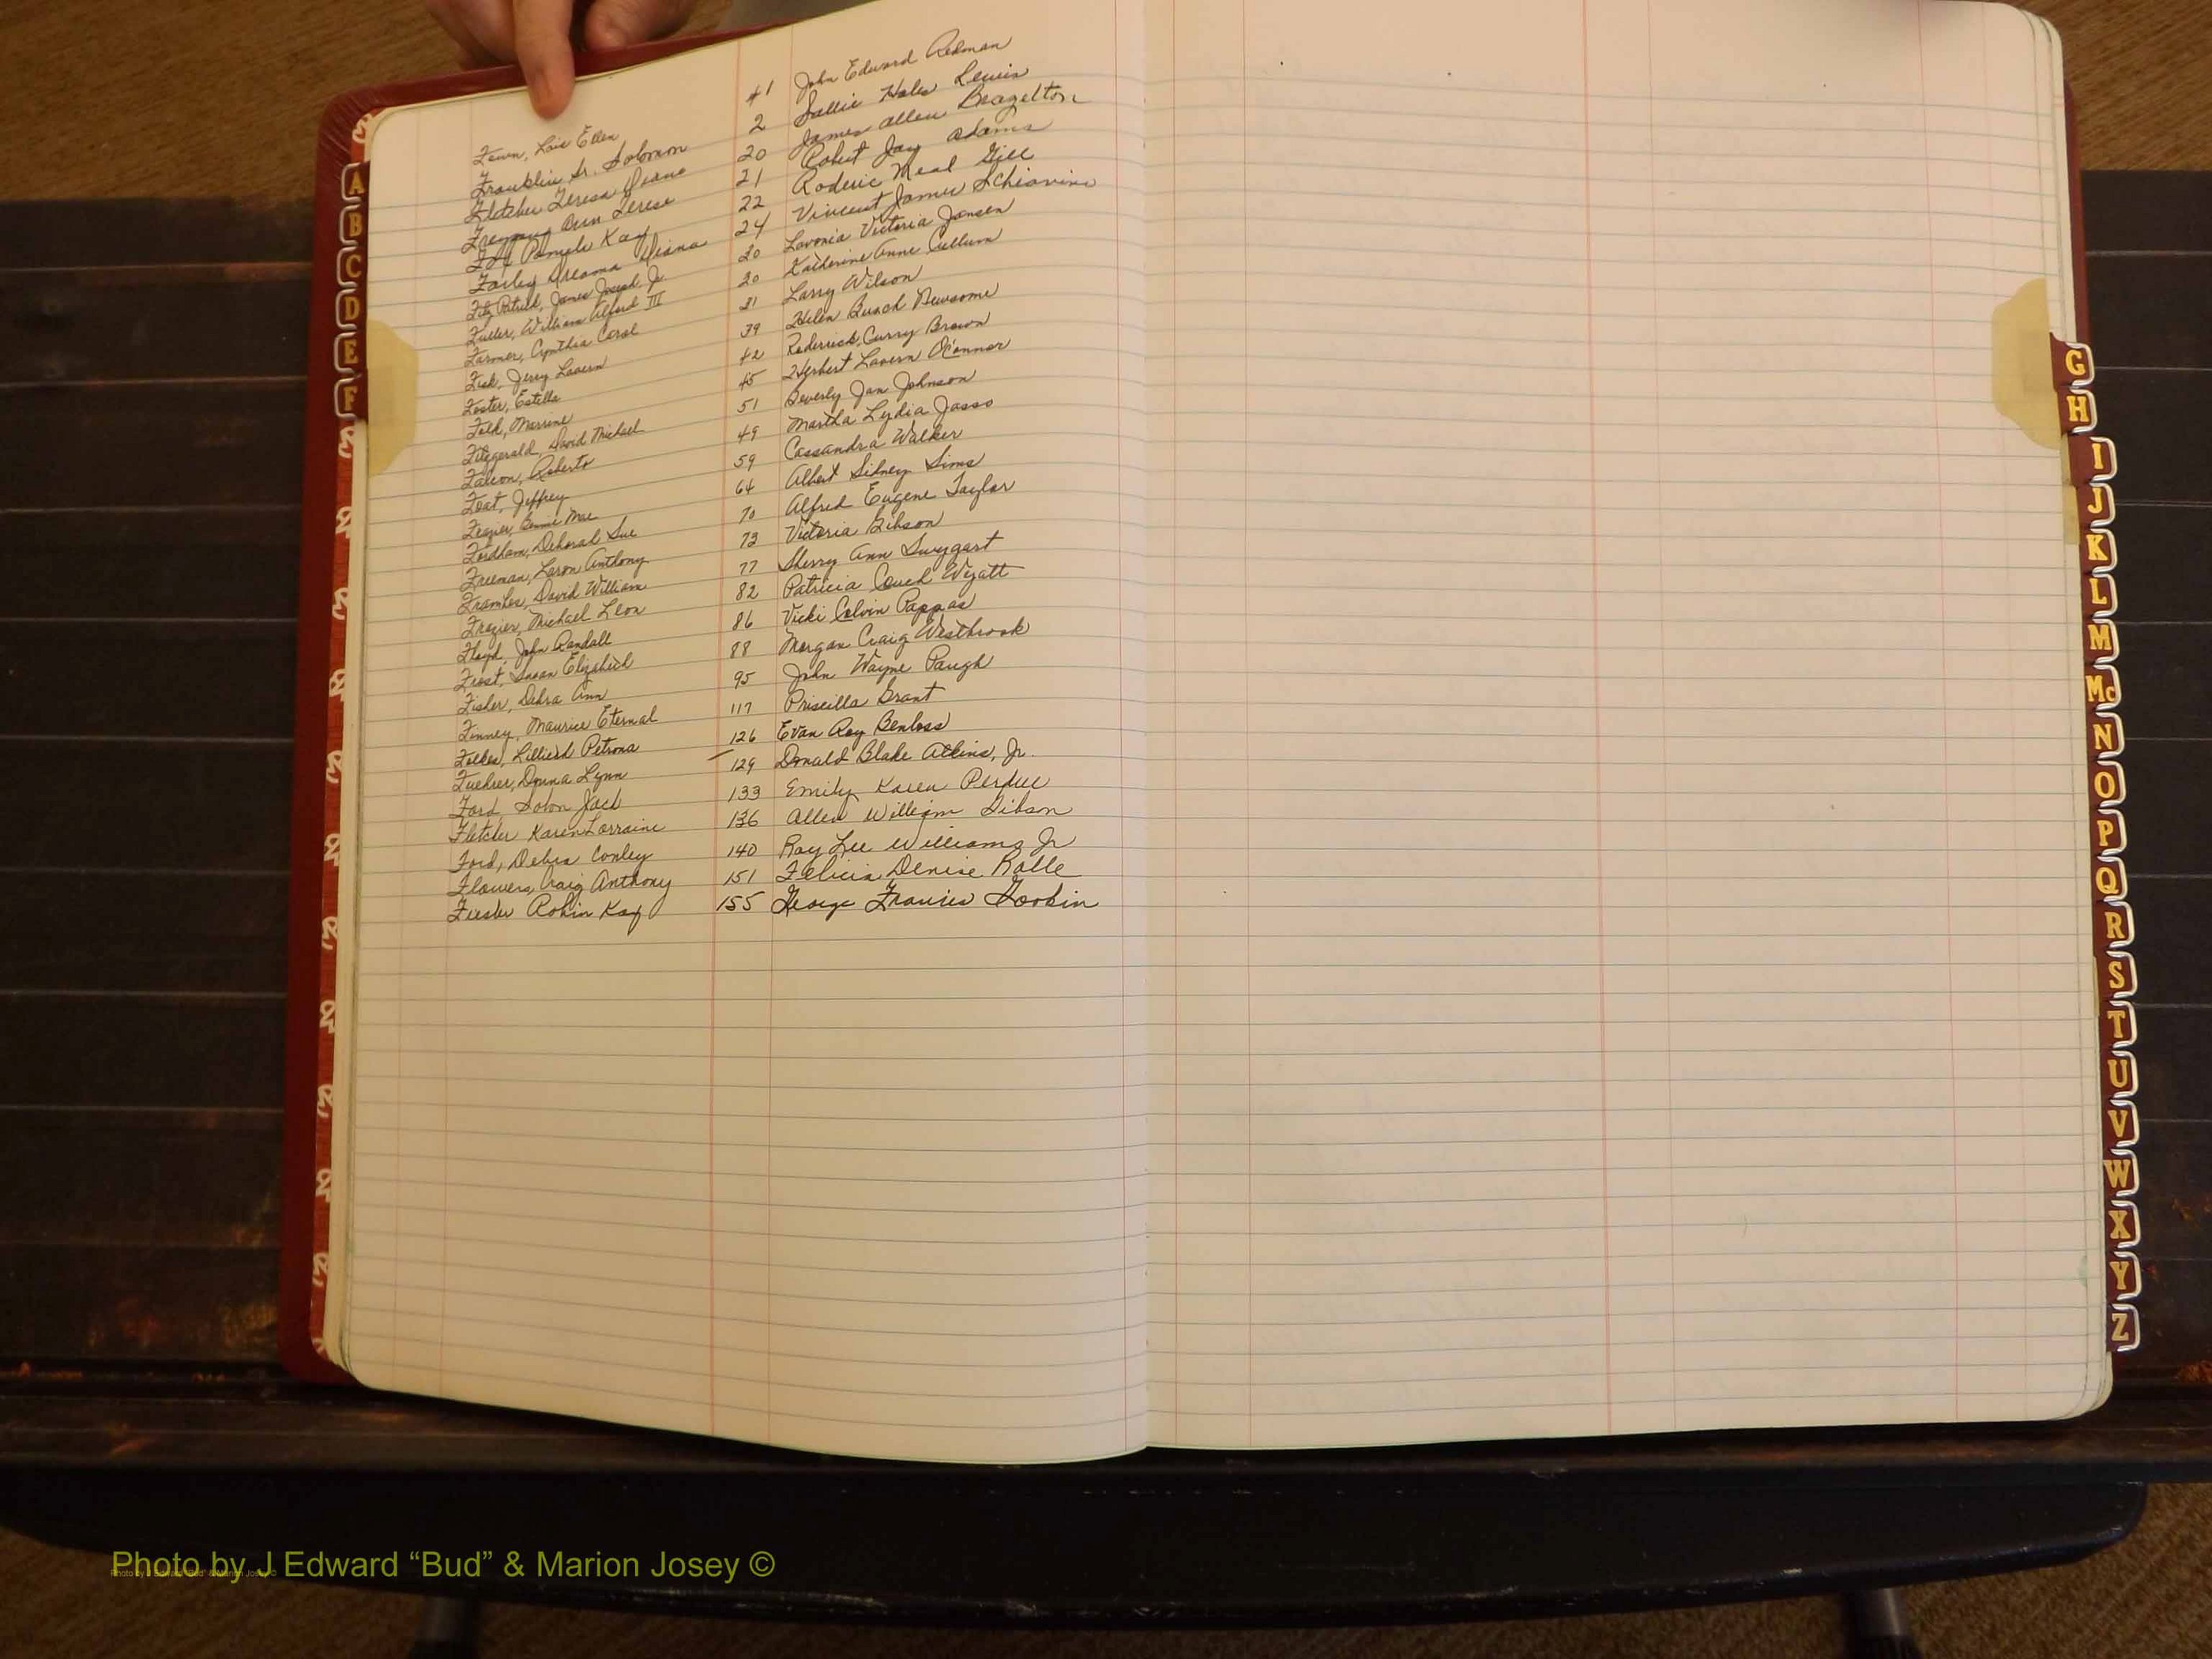 Fewn, Lois Ellen #1 John Edward Redman
Franklin Sr. Solomon 2 Sallie Hales Lewis
Fletcher Teresa Diane 20 James Allen Brazelton
Ann Terese 21 Robert Jay Adams
Pamela Kay 22 Roderic Neal Gill
Farley Dreama Diana 24 Vincent James Schiavino
FitzPatrick, James Joseph Jr 30 Lavonia Victoria Jansen
Fuller, William Alford III 30 Katherine Anne Cullum
Farmer, Cynthia Carol 31 Larry Wilson
Fisk, Jerry Lavern 39 Helen Busch Newsome
Foster, Estella 42 Roderick Curry Brown
Folk, Marrine 45 Herbert Lavern O'Connor
Fitzgerald, David Michael 51 Beverly Jan Johnson
Falcon, Roberto 49 Martha Lydia Jasso
Foat, Jeffrey 59 Cassandra Walker
Frazier, Bennie Mae 64 Albert Sidney Sims
Fordham, Deborah Sue 70 Alfred Eugene Taylor
Freeman, Laron Anthony 73 Victoria Gibson
Frambes, David William 77 Sherry Ann Swygart
Frazier, Michael Leon 82 Patricia Couch Wyatt
Floyd, John Randall 86 Vicki Colvin Pappas
Frost, Susan Elizabeth 88 Morgan Craig Westbrook
Fisher, Debra Ann 95 John Wayne Paugh
Finney, Maurice Eternal 117 Priscilla Grant
Folkes, Lillieth Petrona 126 Evan Roy Benloss
Fuehrer, Donna Lynn 129 Donald Blake Atkins, Jr.
Ford, Solon Jack 133 Emily Karen Perdue
Fletcher Karen Lorraine 136 Allen William Gibson
Ford, Debra Conley 140 Ray Lee Williams Jr
Flowers, Craig Anthony 151 Felicia Denise Rolle
Fiester Robin Kay 155 George Francis Gorbin
A
B
C
D
E
F
G
H
I
J
K
L
M
Mc
N
O
P
Q
R
S
T
U
V
W
X
Y
Z
Photo by J Edward “Bud” & Marion Josey ©
Photo by J Edward "Bud" & Marion Josey ©